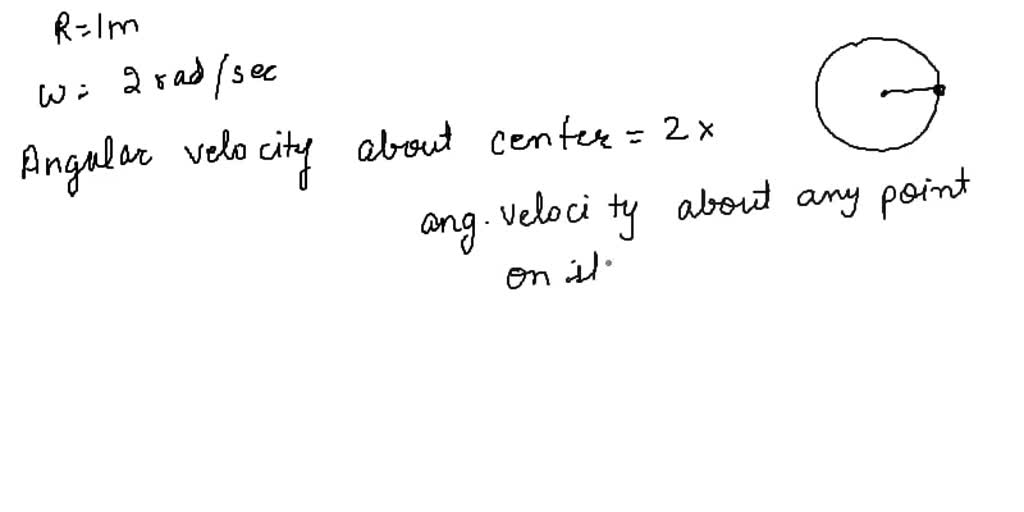 R=1m
w= 2 rad/sec
Angular velocity about center = 2 x
ang. velocity about any point
on